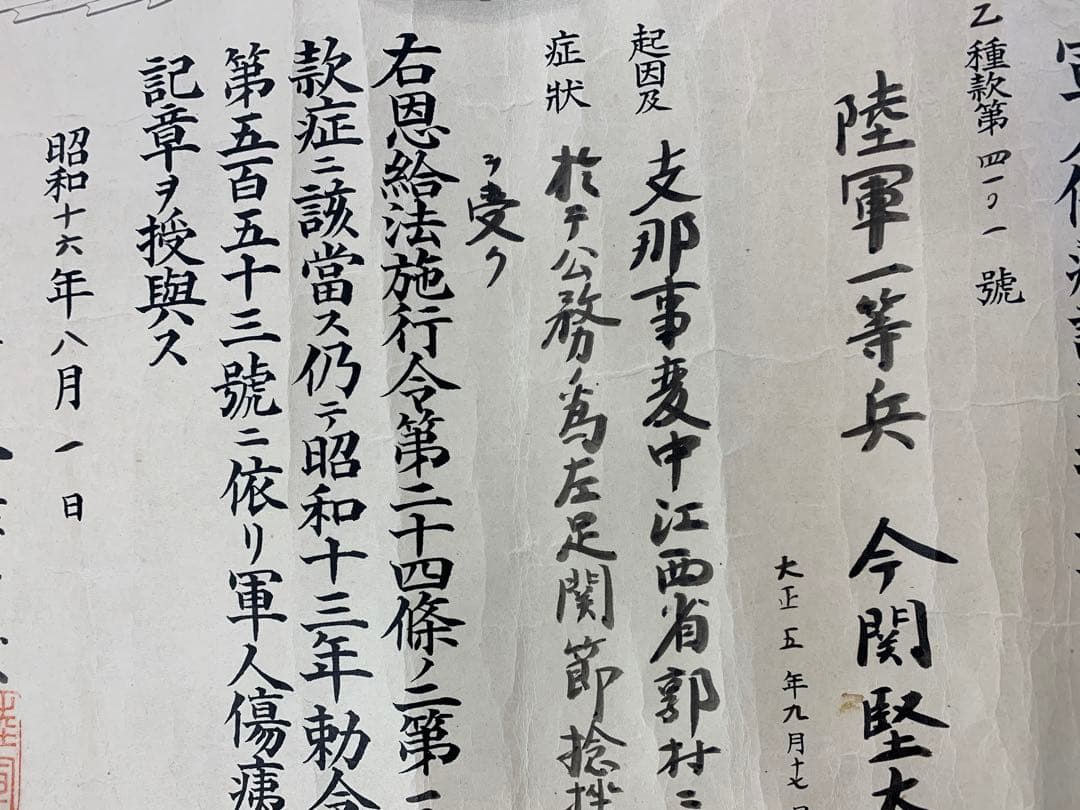 乙種款第四一〇一號
陸軍一等兵 今関堅太
大正五年九月十七日
起因及
症狀
支那事変中江西省郭村ニ
於テ公務ノ為左足関節捻挫
ヲ受ク
右恩給法施行令第二十四條ノ二第一
款症ニ該當ス仍テ昭和十三年勅令
第五百五十三號ニ依リ軍人傷痍
記章ヲ授與ス
昭和十六年八月一日